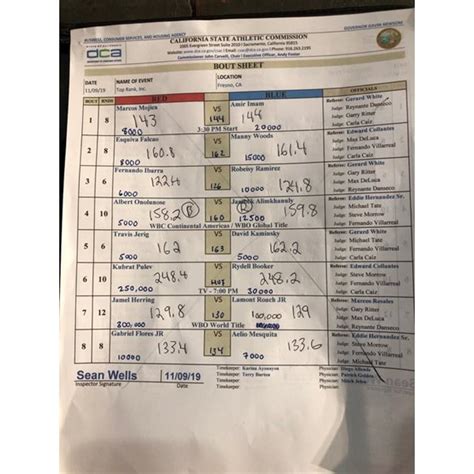 BUSINESS, CONSUMER SERVICES, AND HOUSING AGENCY
GOVERNOR GAVIN NEWSOM
CALIFORNIA STATE ATHLETIC COMMISSION
2005 Evergreen Street Suite 2010 | Sacramento, California 95815
dca
BOUT SHEET
DATE
11/09/19
NAME OF EVENT
Top Rank, Inc.
LOCATION
Fresno, CA
BOUT RNDS RED BLUE OFFICIALS
1 8 Marcos Mojica 143 8000 VS 144 Amir Imam 144 20000
3:30 PM Start
Referee: Gerard White
Judge: Reynante Danseco
Judge: Garry Ritter
Judge: Carla Caiz
2 8 Esquiva Falcao 160.8 8000 VS 162 Manny Woods 161.4 15000
Referee: Edward Collantes
Judge: Max DeLuca
Judge: Fernando Villarreal
Judge: Carla Caiz
3 6 Fernando Ibarra 6000 VS 126 Robeisy Ramirez 124.8 10000
Referee: Gerard White
Judge: Garry Ritter
Judge: Max DeLuca
Judge: Reynante Danseco
4 10 Albert Onolunose 158.2 5000 VS 160 Janibek Alimkhanuly 159.8 12500
WBC Continental Americas / WBO Global Title
Referee: Eddie Hernandez Sr.
Judge: Michael Tate
Judge: Steve Morrow
Judge: Fernando Villarreal
5 6 Travis Jerig 162 5000 VS 163 David Kaminsky 162.2 5000
Referee: Gerard White
Judge: Michael Tate
Judge: Steve Morrow
Judge: Carla Caiz
6 10 Kubrat Pulev 248.4 250,000 VS Rydell Booker 248.2 30000
TV - 7:00 PM
Referee: Edward Collantes
Judge: Fernando Villarreal
7 12 Jamel Herring 129.8 VS 130 Lamont Roach JR 129
WBO World Title
Referee: Marcos Rosales
Judge: Garry Ritter
Judge: Max DeLuca
Judge: Reynante Danseco
8 8 Gabriel Flores JR 133.4 10000 VS 134 Aelio Mesquita 133.6 7000
Referee: Eddie Hernandez Sr.
Judge: Steve Morrow
Judge: Fernando Villarreal
Judge: Michael Tate
Sean Wells 11/09/19
Inspector Signature Date
Timekeeper: Karina Ayonayon
Timekeeper: Terry Burton
Timekeeper:
Physician: Diego Allende
Physician: Patrick Golden